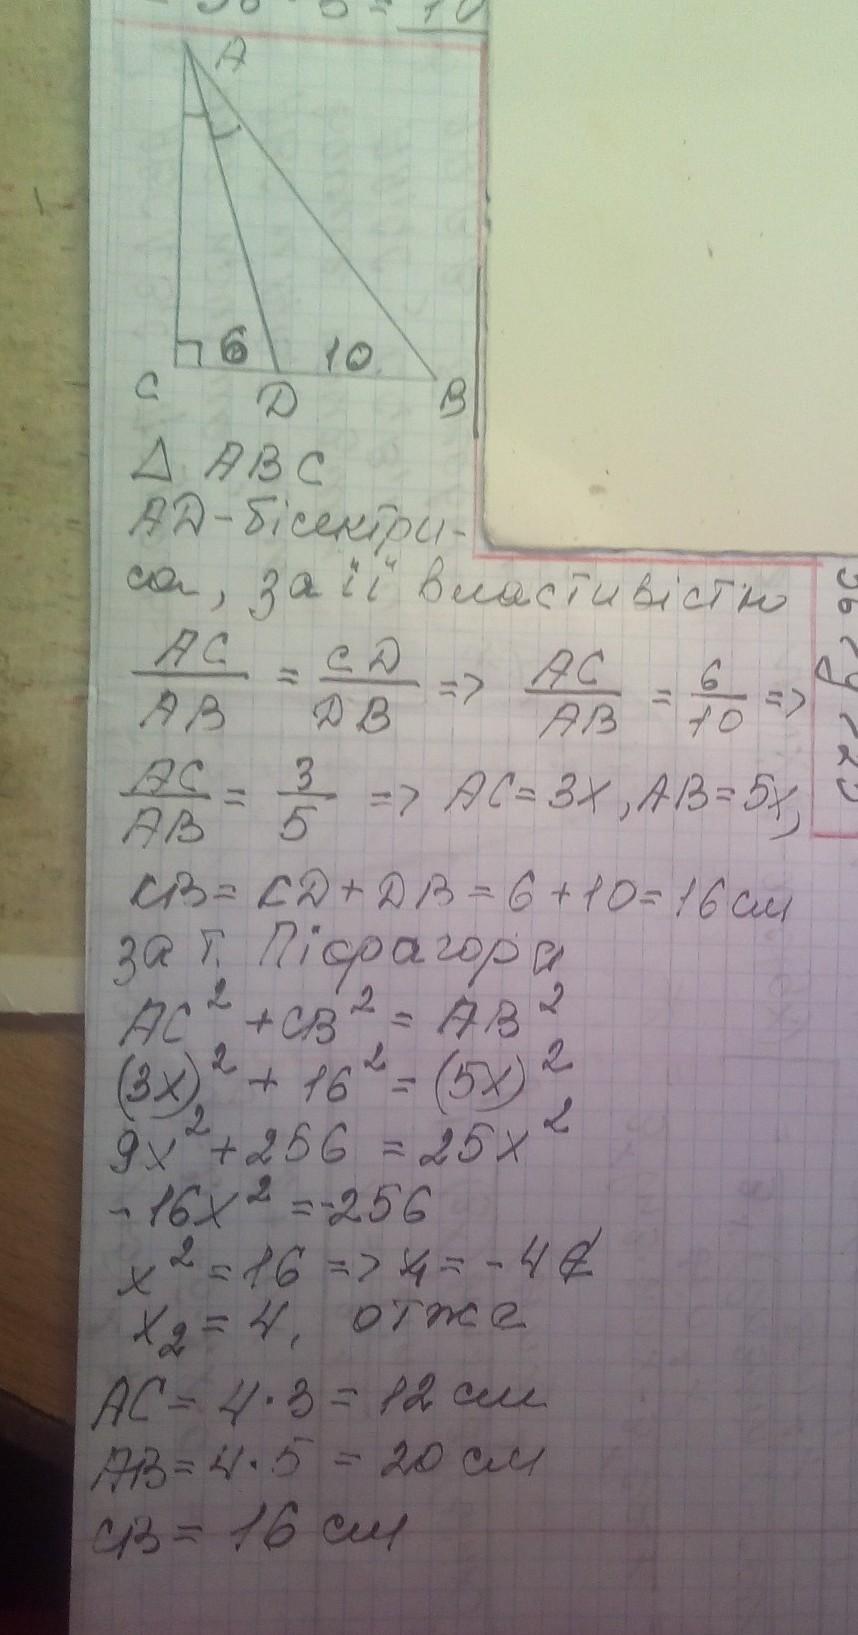 A
6 10
C D B
Δ ABC
AD-бісектри-
са, за "її" властивістю
AC/AB = CD/DB => AC/AB = 6/10 =>
AC/AB = 3/5 => AC=3x, AB=5x,
CB= CD+DB=6+10=16см
за т. Піфагора
AC²+CB²=AB²
(3x)²+16²=(5x)²
9x²+256=25x²
-16x²=-256
x²=16=>x₁=-4 ∉
x₂=4, отже
AC=4·3=12см
AB=4·5=20см
CB=16см